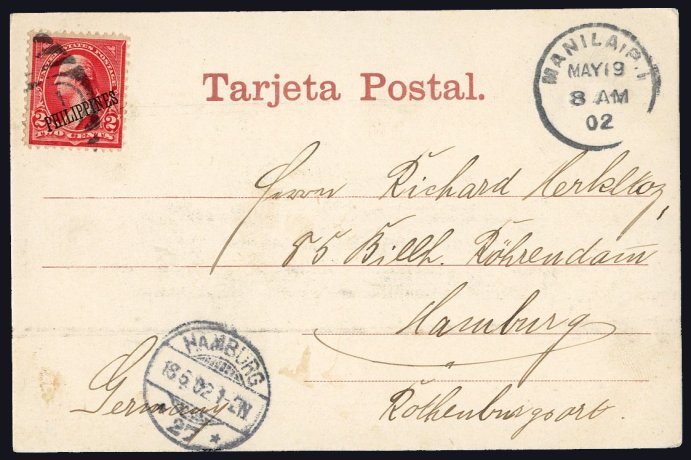 UNITED STATES POSTAGE
PHILIPPINES
2 2
TWO CENTS
Tarjeta Postal.
MANILA, P.I.
MAY 19
8 AM
02
Herrn Richard
85 Billh. Röhrendam̄
Hamburg
Germany
Rothenburgsort.
HAMBURG
18.6.02.1-2N
27 *